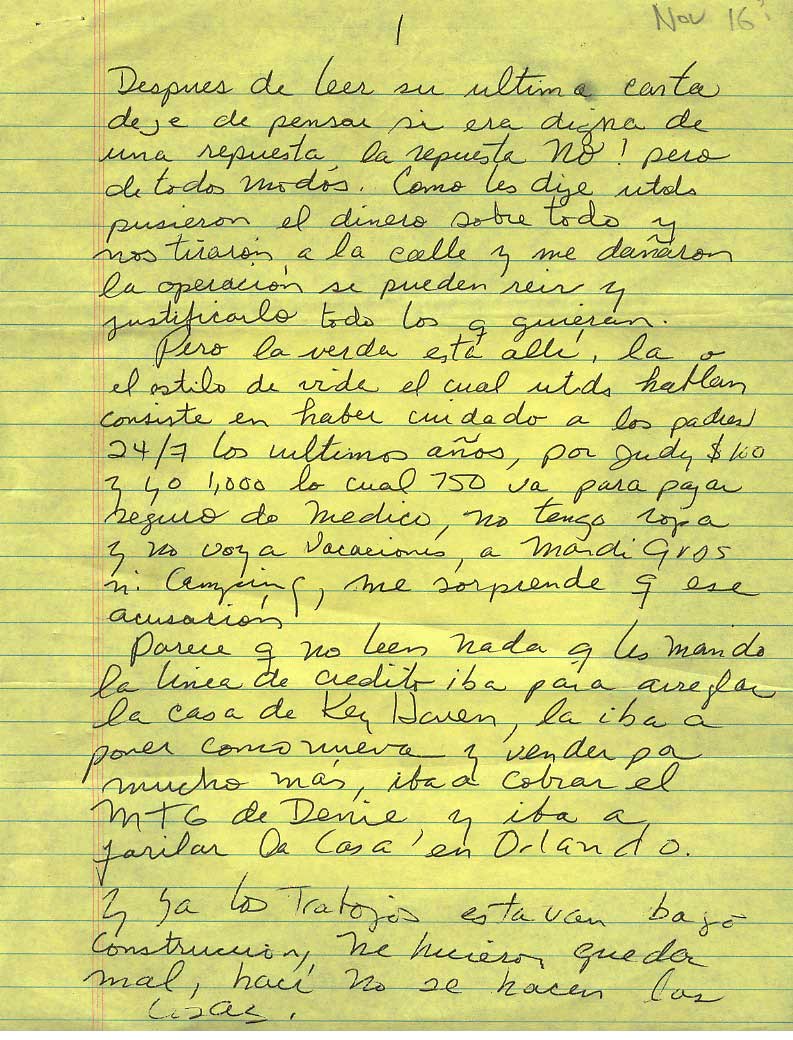 Nov 16
1
Despues de leer su ultima carta
deje de pensar si era digna de
una repuesta, la repuesta No! pero
de todos modos. Como les dije utds
pusieron el dinero sobre todo y
nos tiraron a la calle y me dañaron
la operación se pueden reir y
justificarlo todo los q quieran.
Pero la verda está allí, la o
el estilo de vide el cual utds hablan
consiste en haber cuidado a los padres
24/7 los ultimos años, por Judy $100
y yo 1,000 lo cual 750 va para pagar
seguro de medico, no tengo ropa
y no voy a vacaciones, a Mardi Gros
ni Camping, me sorprende q ese
acusación
Parece q no leen nada q les mando
la linea de credito iba para arreglar
la casa de Key Haven, la iba a
poner como nueva y vender por
mucho más, iba a cobrar el
MTG de Denie y iba a
la Casa en Orlando.
y ya los Trabajos estavan bajo
construccion, me hicieron quedar
mal, hací no se hacen las
cosas.